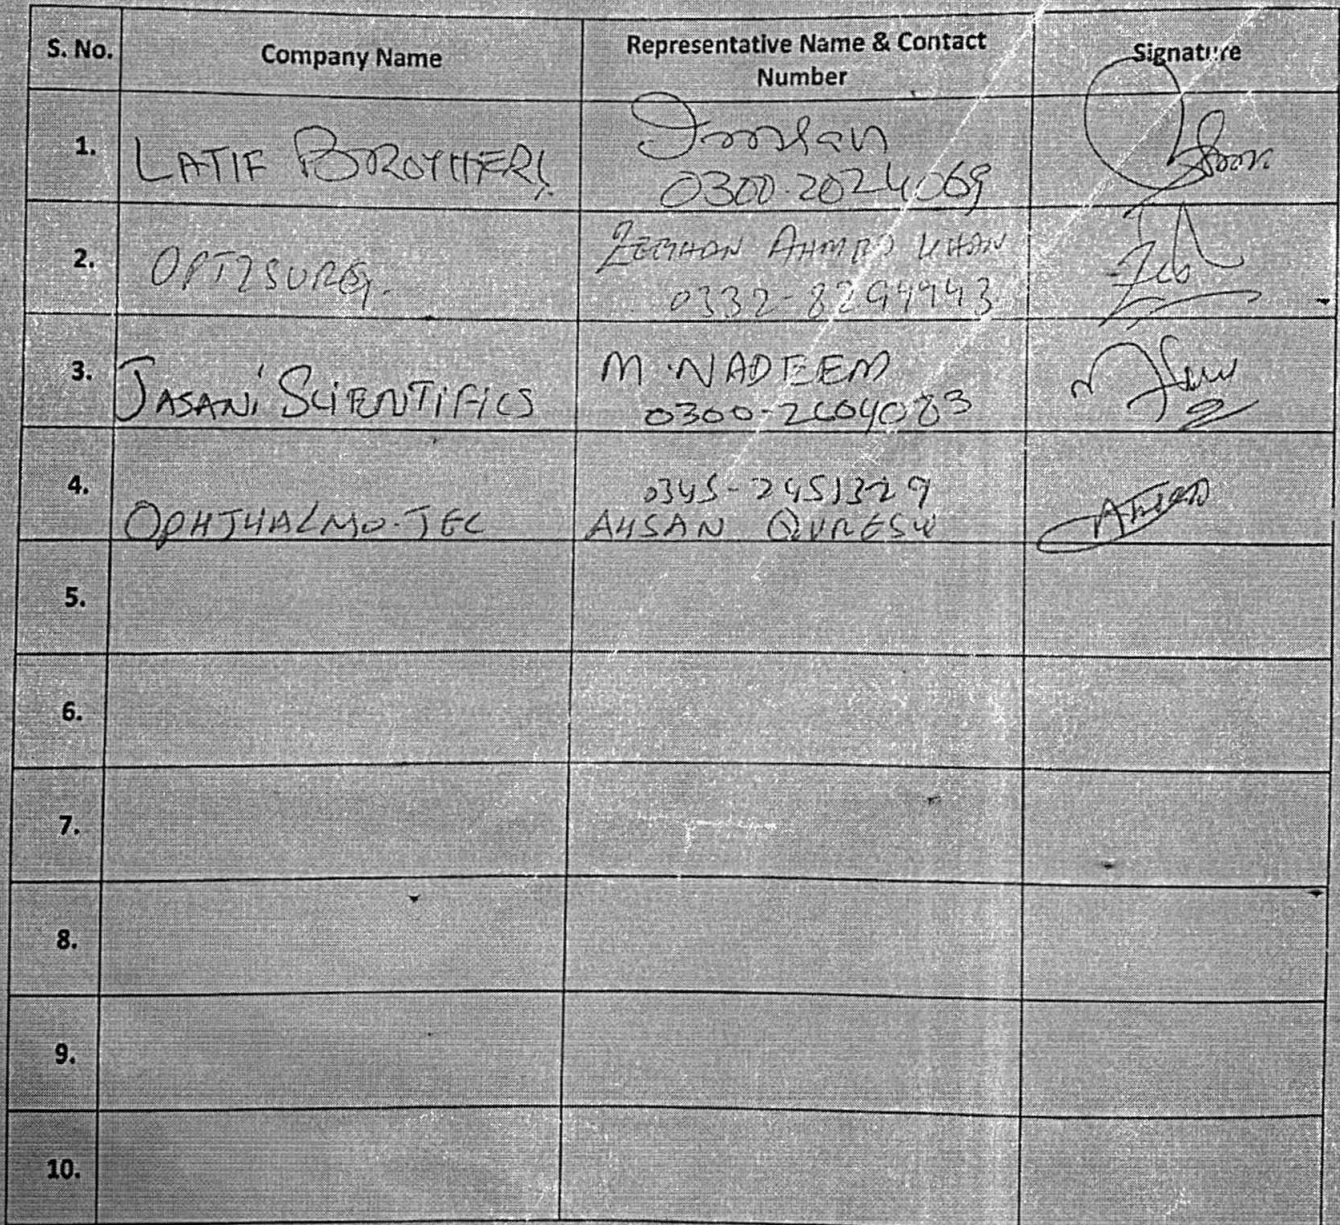 S. No. Company Name Representative Name & Contact Number Signature
1. LATIF BROTHERS Imran
0300-2024069
2. OPTISURG. AHMED KHAN
0332-8299943
3. JASANI SCIENTIFICS M. NADEEM
0300-2604083
4. OPHTHALMO-TEC 0345-2451329
AHSAN QURESHI AHSAN
5.
6.
7.
8.
9.
10.